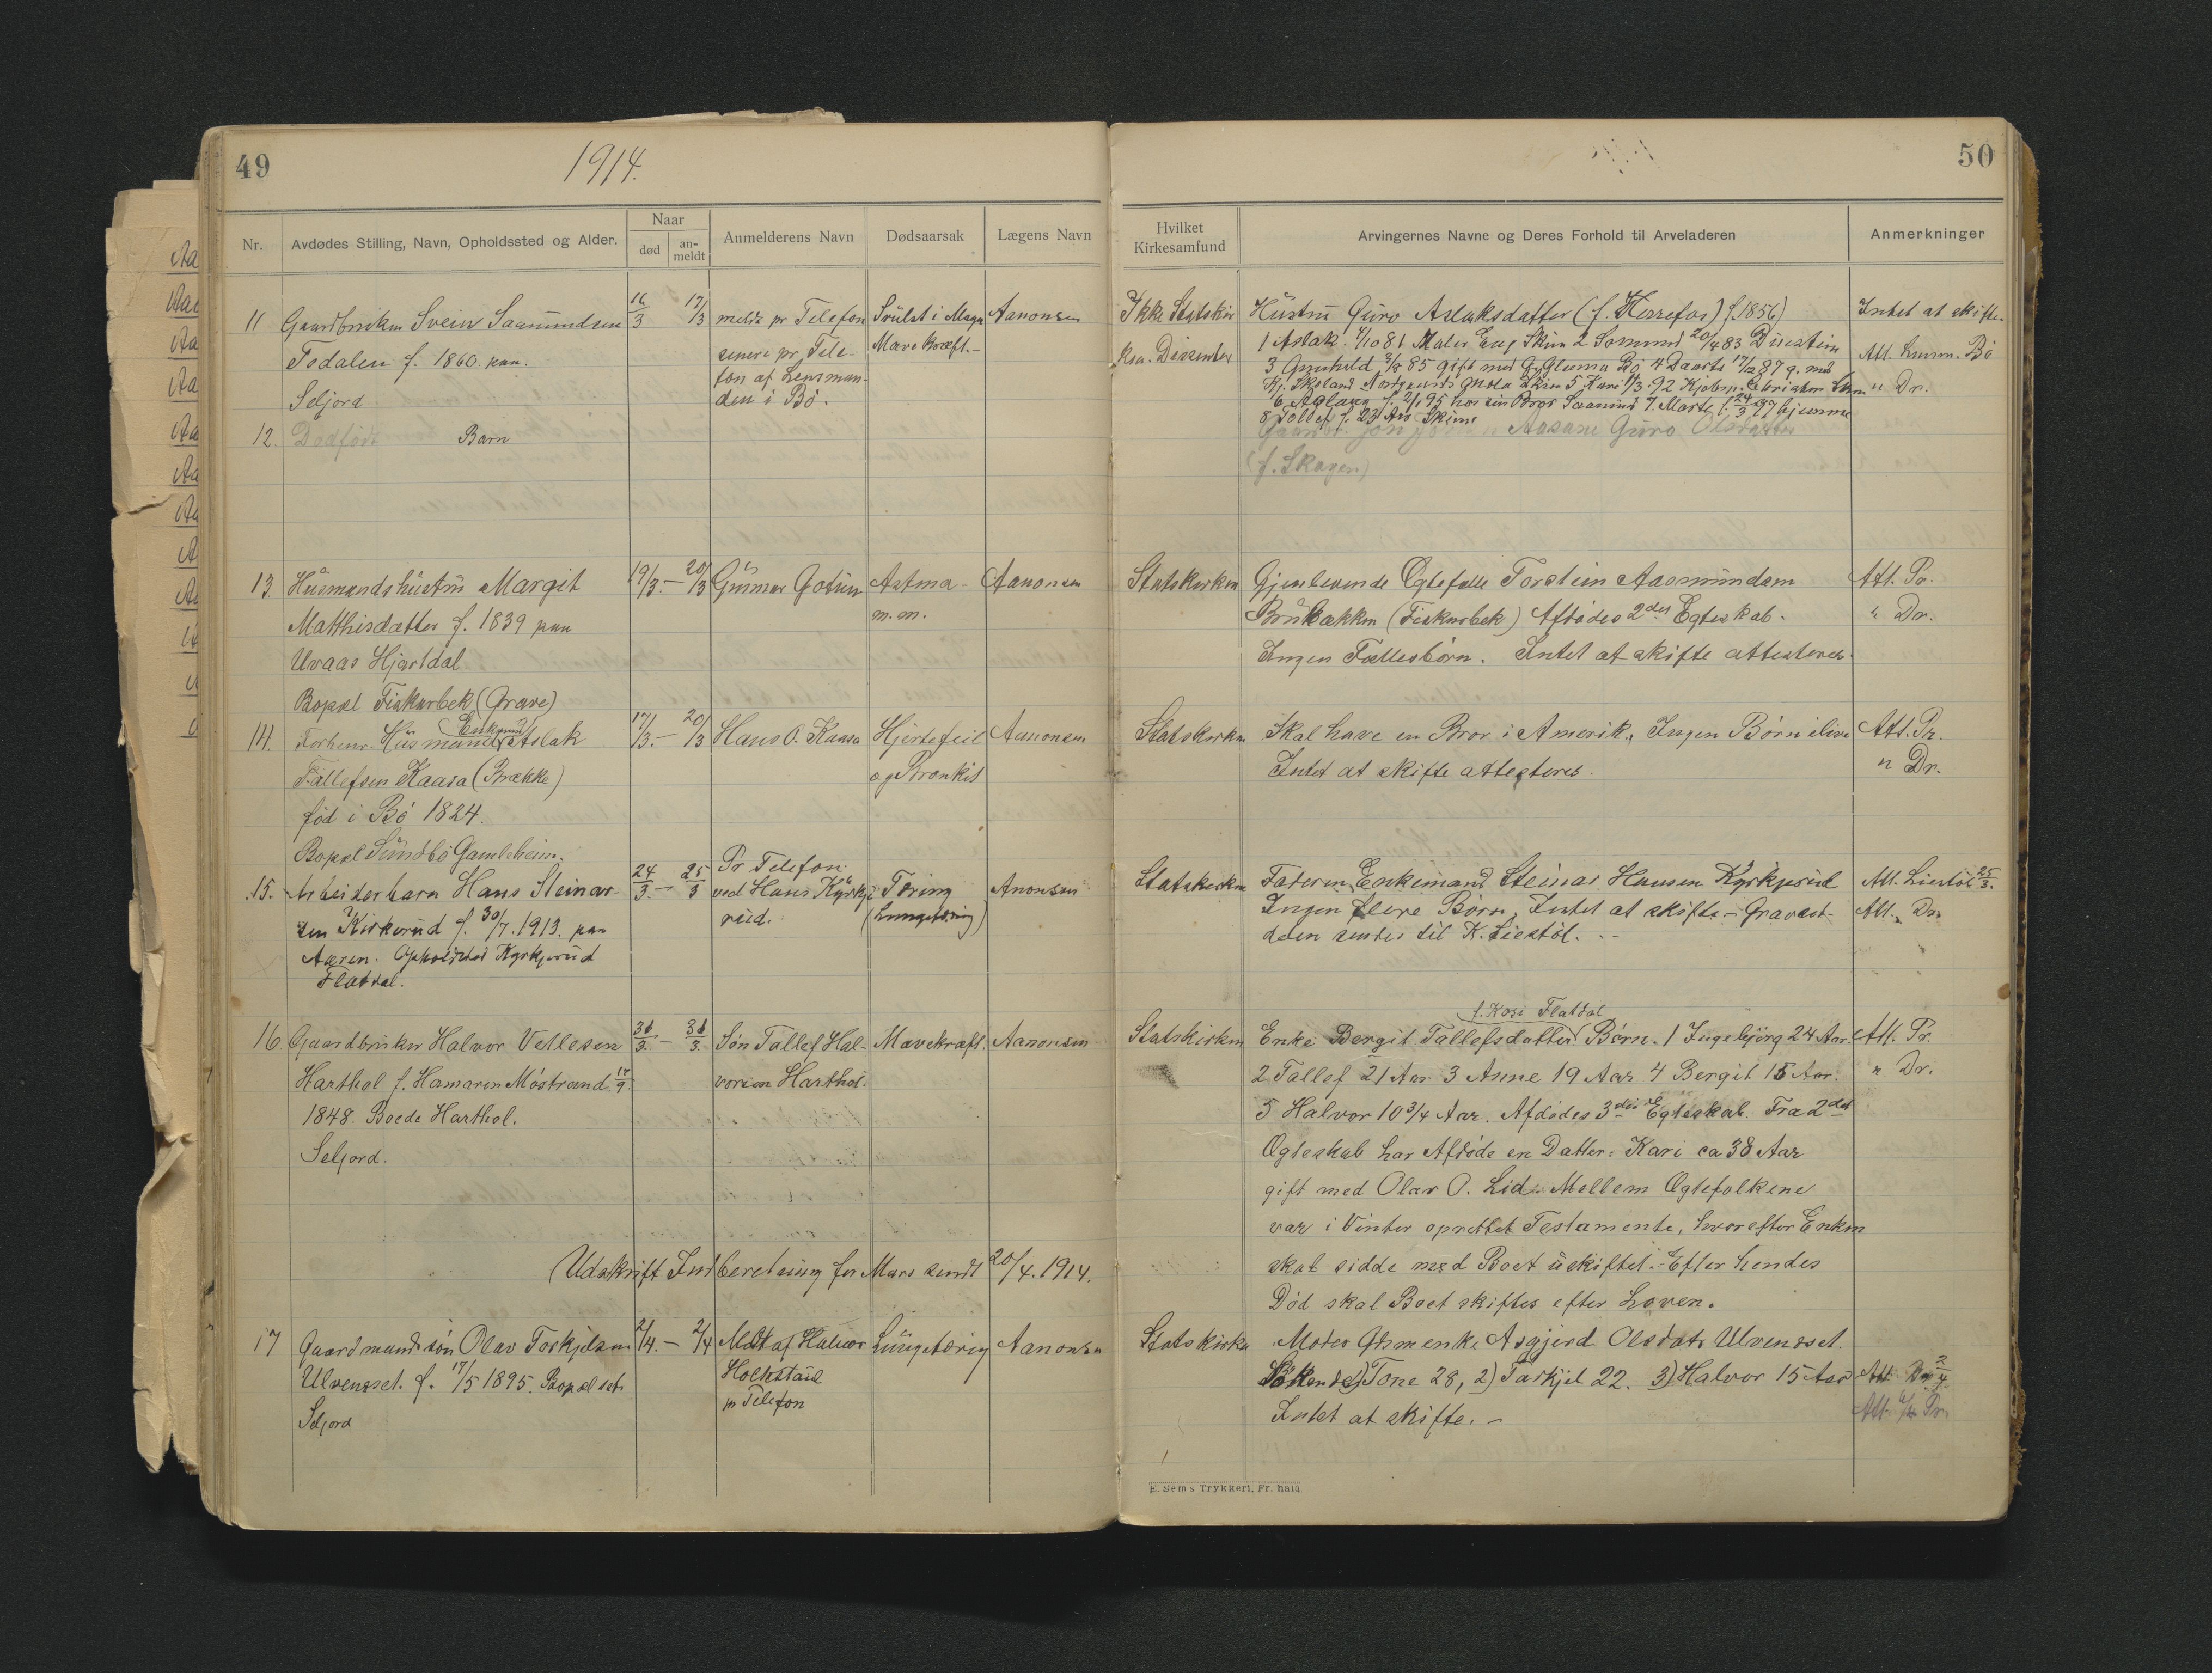 49
1914.
Nr.
Avdødes Stilling, Navn, Opholdssted og Alder.
Naar
død
an-
meldt
Anmelderens Navn
Dødsaarsak
Lægens Navn
11 Gaardbruker Svein Saamundsen 16/3 17/3 meldt pr Telefon Svulst i Mage Aanonsen
Todalen f. 1860 paa senere pr. Tele- Mave Kræft.-
fon af Lensman-
Seljord den i Bö.
12. Dødfødt Barn
13. Husmandshustru Margit 19/3 - 20/3 Gunnar Gotun Astma - Aanonsen
Matthisdatter f. 1839 paa m.m.
Uvaas Hjartdal
Bopæl Fiskarbek (Grave)
14. Forhenv. Husmand Enkemand Aslak 17/3 - 20/3 Hans O. Kaasa Hjertefeil Aanonsen
Tallefsen Kaasa (Brække) og Bronkit
fød i Bö 1824.
Bopæl Sundbö Gamleheim.
Pr Telefon
15. Arbeiderbarn Hans Steinar- 24/3 - 25/3 ved Hans Kyrkje- Tæring Anonsen
sen Kirkerud f. 30/7. 1913. paa rud. (Lungetæring)
Aasen. Opholdsted Kyrkjerud
Flatdal.
16. Gaardbruker Halvor Vetlesen 31/3 - 31/3 Søn Tallef Hal- Mavekræft. Aanonsen
Harthol f. Hamaren Möstrand 17/9 vorson Harthol.
1848. Boede Harthol.
Seljord.
Udskrift Indberetning for Mars sendt 20/4. 1914.
17 Gaardmandssön Olav Torkjelsen 2/4. - 2/4 Meldt af Halvor Lungetæring Aanonsen
Ulvensset. f. 17/5 1895. Bopæl sst.
Seljord pr Telefon
50
Hvilket
Kirkesamfund
Arvingernes Navne og Deres Forhold til Arveladeren
Anmerkninger
Ikke Statskir Hustru Guro Aslaksdatter (f. Herrefos) f. 1856) Intet at skifte.
Dissenter 1 Aslak. 81 Maler Skien 2 Somund 20/4 83
3 Gunhild 85 gift med G. Gluma Bö 4 87 g. med Att. Lensm. Bö
5 Kari 92 " Dr.
6 Aslaug f. 95 hos sin Bror Saamund 7. Marte f. 24/3 97 hjemme
8 Tollef f. 23 Aar Skien
Jon Aasane Guro Olsdatter
(f. Skogen)
Statskirken Gjenlevende Ægtefælle Torstein Aasmundsen Att. Pr.
Brubakken (Fiskarbek) Afdödes 2det Egteskab. " Dr.
Ingen Fællesbörn. Intet at skifte attesteres.
Statskirken Skal have en Bror i Amerik. Ingen Börn ilive Att. Pr.
Intet at skifte attesteres. " Dr.
Statskirken Faderen Enkemand Steinar Hansen Kyrkjerud Att. Liestöl 25/3.
Ingen flere Börn, Intet at skifte - Gravsed- Att. Dr.
delen sendes til K. Liestöl. -
f. Kasi Flatdal
Statskirken Enke Bergit Tallefsdatter Børn. 1 Ingebjörg 24 Aar Att. Pr.
2 Tallef 21 Aar 3 Anne 19 Aar 4 Bergit 15 Aar. " Dr.
5 Halvor 10 3/4 Aar. Afdödes 3die Egteskab. Fra 2det
Ægteskab har Afdöde en Datter: Kari ca 38 Aar
gift med Olav O. Lid. Mellem Ægtefolkene
var i Vinter oprettet Testamente, hvorefter Enken
skal sidde med Boet uskiftet. Efter hendes
Död skal Boet skiftes efter Loven.
Statskirke Moder Asgjerd Olsdatr Ulvensset.
1) Tone 28, 2) Tarkjel 22. 3) Halvor 15 Aar Att. Dr. 2/4
Intet at skifte. - Att. Pr.
E. Sem's Trykkeri, Fr. hald